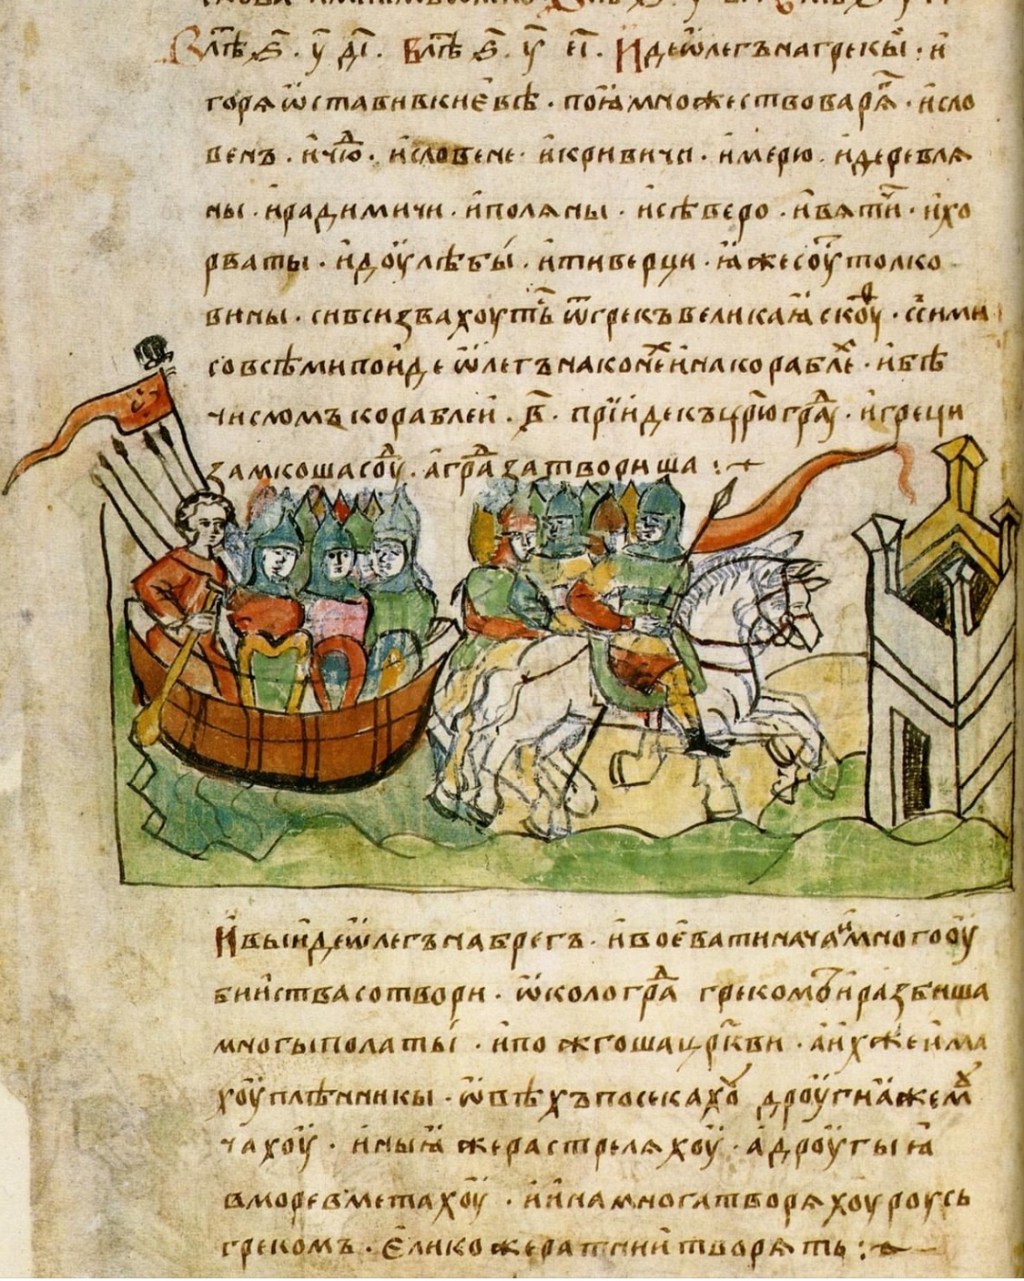 В лѣ ҂ѕ҃ . у҃ . д҃і . В лѣ ҂ѕ҃ . у҃ . е҃і . Иде ѡлегъ на грекы҆ . и
горѧ ѡставив киеве . поꙗ множество варѧ . и сло
венъ . и чю . и словене . и кривичи . и мерю . и деревлѧ
ны . и радимичи . и полѧны . и сѣверо . и вѧти . и хо
рваты . и доулѣбы . и тиверци . ꙗже соуть толко
вины . си вси звахоуть ѿ грекъ великаꙗ скоу . с сими
со всѣми поиде ѡлегъ на коне и на корабле . и бѣ
числомъ кораблеи . в҃ . прїиде къ црюгра . и греци
замкоша соу . а гра затвориша :
И выиде ѡлегъ на брегъ . и воевати нача и много оу
биства сотвори . ѡколо гра греком и разбиша
многы полаты . и пожгоша цркви . а их же има
хоу плѣнникы . ѡвѣхъ посекахо дроугиꙗ же м
чахоу . иныꙗ же растрелѧхоу . а дроугыꙗ
в море вметахоу . и ина многа творѧхоу роусь
грекомъ . Елико же ратнии творѧть :